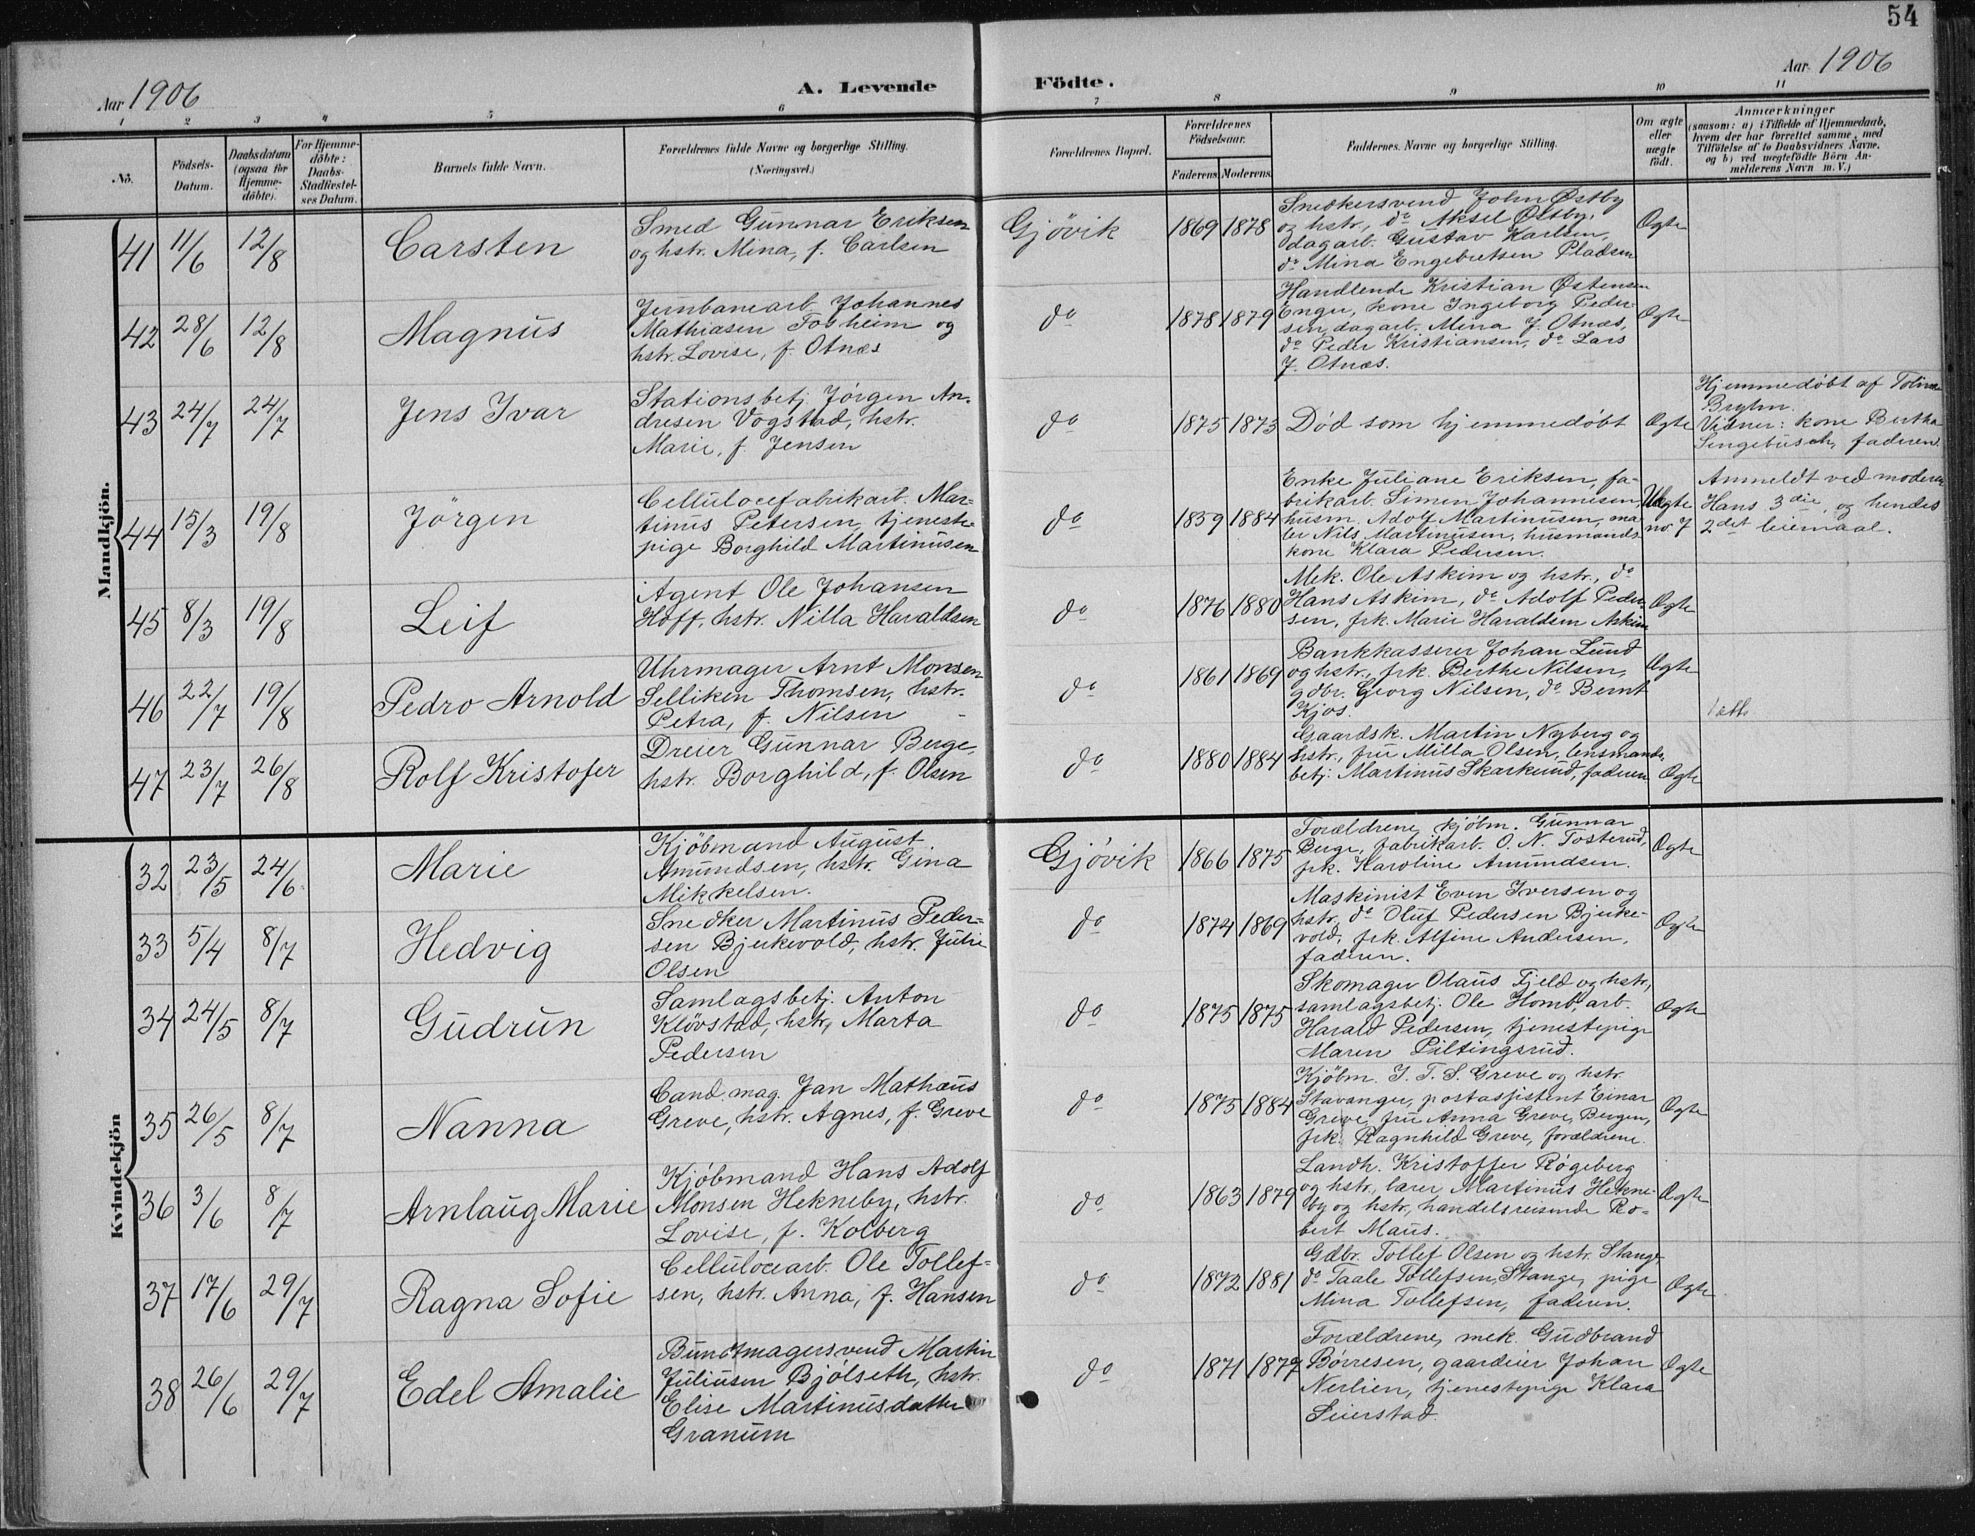 54
Aar 1906
A. Levende Födte.
Aar 1906
1 2 3 4 5 6 7 8 9 10 11
No.
Födsels-
Datum.
Daabsdatum
(ogsaa for
Hjemme-
döbte).
For Hjemme-
döbte:
Daabs-
Stadfæstel-
ses Datum.
Barnets fulde Navn.
Forældrenes fulde Navne og borgerlige Stilling.
(Næringsvei.)
Forældrenes Bopæl.
Forældrenes
Födselsaar.
Faderens. Moderens.
Faddernes. Navne og borgerlige Stilling.
Om ægte
eller
uægte
födt.
Anmærkninger
(saasom: a) i Tilfælde af Hjemmedaab,
hvem der har forrettet samme, med
Tilföielse af to Daabsvidners Navne.
og b) ved uægtefödte Börn An-
melderens Navn m. V.)
Mandkjön.
41 11/6 12/8 Carsten
Smed Gunnar Eriksen
og hstr. Mina, f. Carlsen
Gjövik 1869 1878
Snedkersvend John Østby
og hstr., do Aksel Østby,
dagarb. Gustav Karlsen,
do Mina Engebretsen Pladsen
Ægte
42 28/6 12/8 Magnus
Jernbanearb. Johannes
Mathiasen Tosheim og
hstr. Lovise, f. Otnæs
do 1878 1879
Handlende Kristian Østensen
Enger, kone Ingeborg Peder-
sen, dagarb. Mina J. Otnæs,
do Peder Kristiansen, do Lars
J. Otnæs.
Ægte
43 24/7 24/7 Jens Ivar
Stationsbetj. Jörgen An-
dresen Vogstad, hstr.
Marie, f. Jensen
do 1875 1873
Död som hjemmedöbt
Ægte
Hjemmedöbt af
Bryhn.
Vidner: kone Bertha
Sengebusch, faderen.
44 15/3 19/8 Jörgen
Cellulocefabrikarb. Mar-
tinus Petersen, tjeneste-
pige Borghild Martinusen
do 1859 1884
Enke Juliane Eriksen, fa-
brikarb. Simen Johannesen,
husm. Adolf Martinusen, ma-
ler Nils Martinusen, husmands-
kone Klara Pedersen.
Uægte
no 7
Anmeldt ved moderen
Hans 3die, og hendes
2det leiemaal.
45 8/3 19/8 Leif
Agent Ole Johansen
Hoff, hstr. Nilla Haraldsen
do 1876 1880
Mek. Ole Askim og hstr., do
Hans Askim, do Adolf Peder-
sen, frk. Marie Haraldsen Askim
Ægte
46 22/7 19/8 Pedro Arnold
Uhrmager Arnt Monsen
Selliken Thomsen, hstr.
Petra, f. Nilsen
do 1861 1869
Bankkasserer Johan Lund
og hstr., frk. Berthe Nilsen,
gdbr. Georg Nilsen, do Bernt
Kjos.
Ægte
1 att.
47 23/7 26/8 Rolf Kristofer
Dreier Gunnar Berge,
hstr. Borghild, f. Olsen
do 1880 1884
Gaardsk. Martin Nyberg og
hstr., fru Milla Olsen, lensmands-
betj. Martinus Skarkerud, faderen
Ægte
Kvindekjön
32 23/5 24/6 Marie
Kjöbmand August
Amundsen, hstr. Gina
Mikkelsen.
Gjövik 1866 1875
Forældrene, kjöbm. Gunnar
Berge, fabrikarb. O. N. Tosterud,
frk. Karoline Amundsen.
Ægte
33 5/4 8/7 Hedvig
Snedker Martinus Peder-
sen Bjerkevold, hstr. Julie
Olsen
do 1874 1869
Maskinist Even Iversen og
hstr., do Oluf Pedersen Bjerke-
vold, frk. Alfine Andersen,
faderen.
Ægte
34 24/5 8/7 Gudrun
Samlagsbetj. Anton
Klövstad, hstr. Marta
Pedersen
do 1875 1875
Skomager Olaus Fjeld og hstr.,
samlagsbetj. Ole Homb, arb.
Harald Pedersen, tjenestepige
Maren Piltingsrud.
Ægte
35 26/5 8/7 Nanna
Cand. mag. Jan Mathæus
Greve, hstr. Agnes, f. Greve
do 1875 1884
Kjöbm. J. T. S. Greve og hstr.
Stavanger, postassistent Einar
Greve, fru Anna Greve, Bergen,
frk. Ragnhild Greve, forældrene.
Ægte
36 3/6 8/7 Arnlaug Marie
Kjöbmand Hans Adolf
Monsen Hekneby, hstr.
Lovise, f. Kolberg
do 1863 1879
Landh. Kristoffer Rögeberg
og hstr., lærer Martinus Hekne-
by og hstr., handelsreisende Ro-
bert Maus.
Ægte
37 17/6 29/7 Ragna Sofie
Cellulocearb. Ole Tollef-
sen, hstr. Anna, f. Hansen
do 1872 1881
Gdbr. Tollef Olsen og hstr. Stange,
do Taale Tollefsen, Stange, pige
Mina Tollefsen, faderen.
Ægte
38 26/6 29/7 Edel Amalie
Buntmagersvend Martin
Juliusen Bjölseth, hstr.
Elise Martinusdatter
Granum
do 1871 1877
Forældrene, mek. Gudbrand
Börresen, gaardeier Johan
Nerlien, tjenestepige Klara
Seierstad.
Ægte